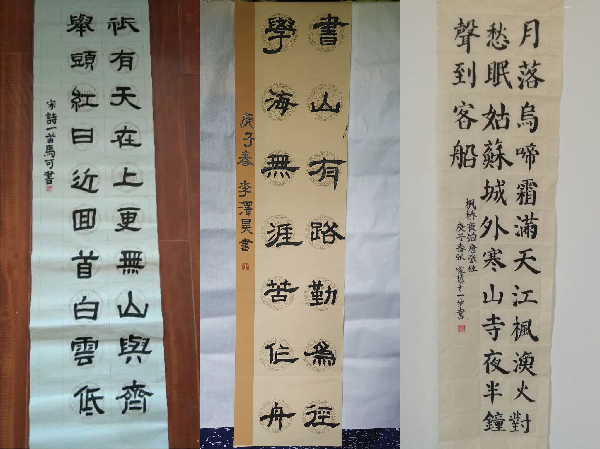 祇有天在上更無山與齊
舉頭紅日近囬首白雲低
宋詩一首馬可書
書山有路勤為徑
學海無涯苦作舟
庚子春 李澤昊書
月落烏啼霜滿天江楓漁火對
愁眠姑蘇城外寒山寺夜半鐘
聲到客船
楓橋夜泊唐張繼
庚子春張 十一歲書